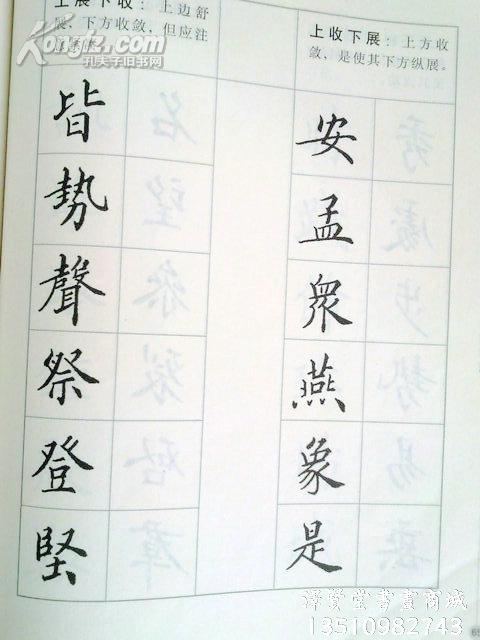 上展下收：上边舒
展，下方收敛，但应注
上收下展：上方收
敛，是使其下方纵展。
皆
势
聲
祭
登
堅
安
孟
衆
燕
象
是
孔夫子旧书网
博賢堂書畫商城
13510982743